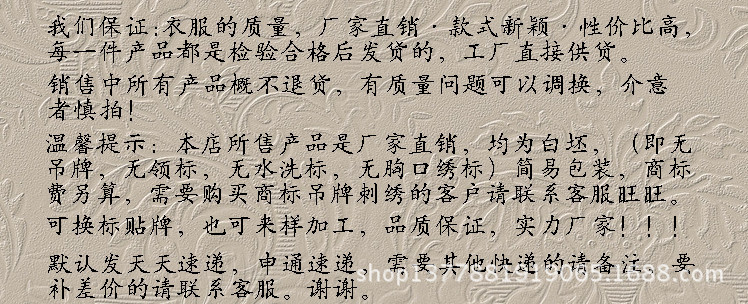 我们保证:衣服的质量，厂家直销·款式新颖·性价比高，
每一件产品都是检验合格后发货的，工厂直接供货。
销售中所有产品概不退货，有质量问题可以调换，介意
者慎拍！
温馨提示：本店所售产品是厂家直销，均为白坯，（即无
吊牌，无领标，无水洗标，无胸口绣标）简易包装，商标
费另算，需要购买商标吊牌刺绣的客户请联系客服旺旺。
可换标贴牌，也可来样加工，品质保证，实力厂家！！！
默认发天天速递，申通速递 需要其他快递的请备注 要
补差价的请联系客服。谢谢。
shop1377681919005.1688.com